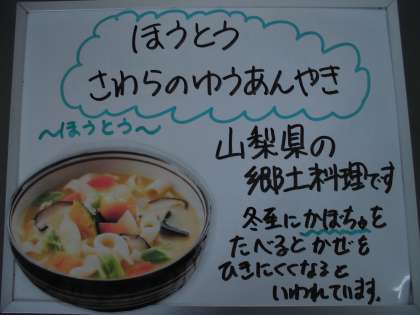 ほうとう
さわらのゆうあんやき
～ほうとう～
山梨県の
郷土料理です
冬至にかぼちゃを
たべるとかぜを
ひきにくくなると
いわれています。